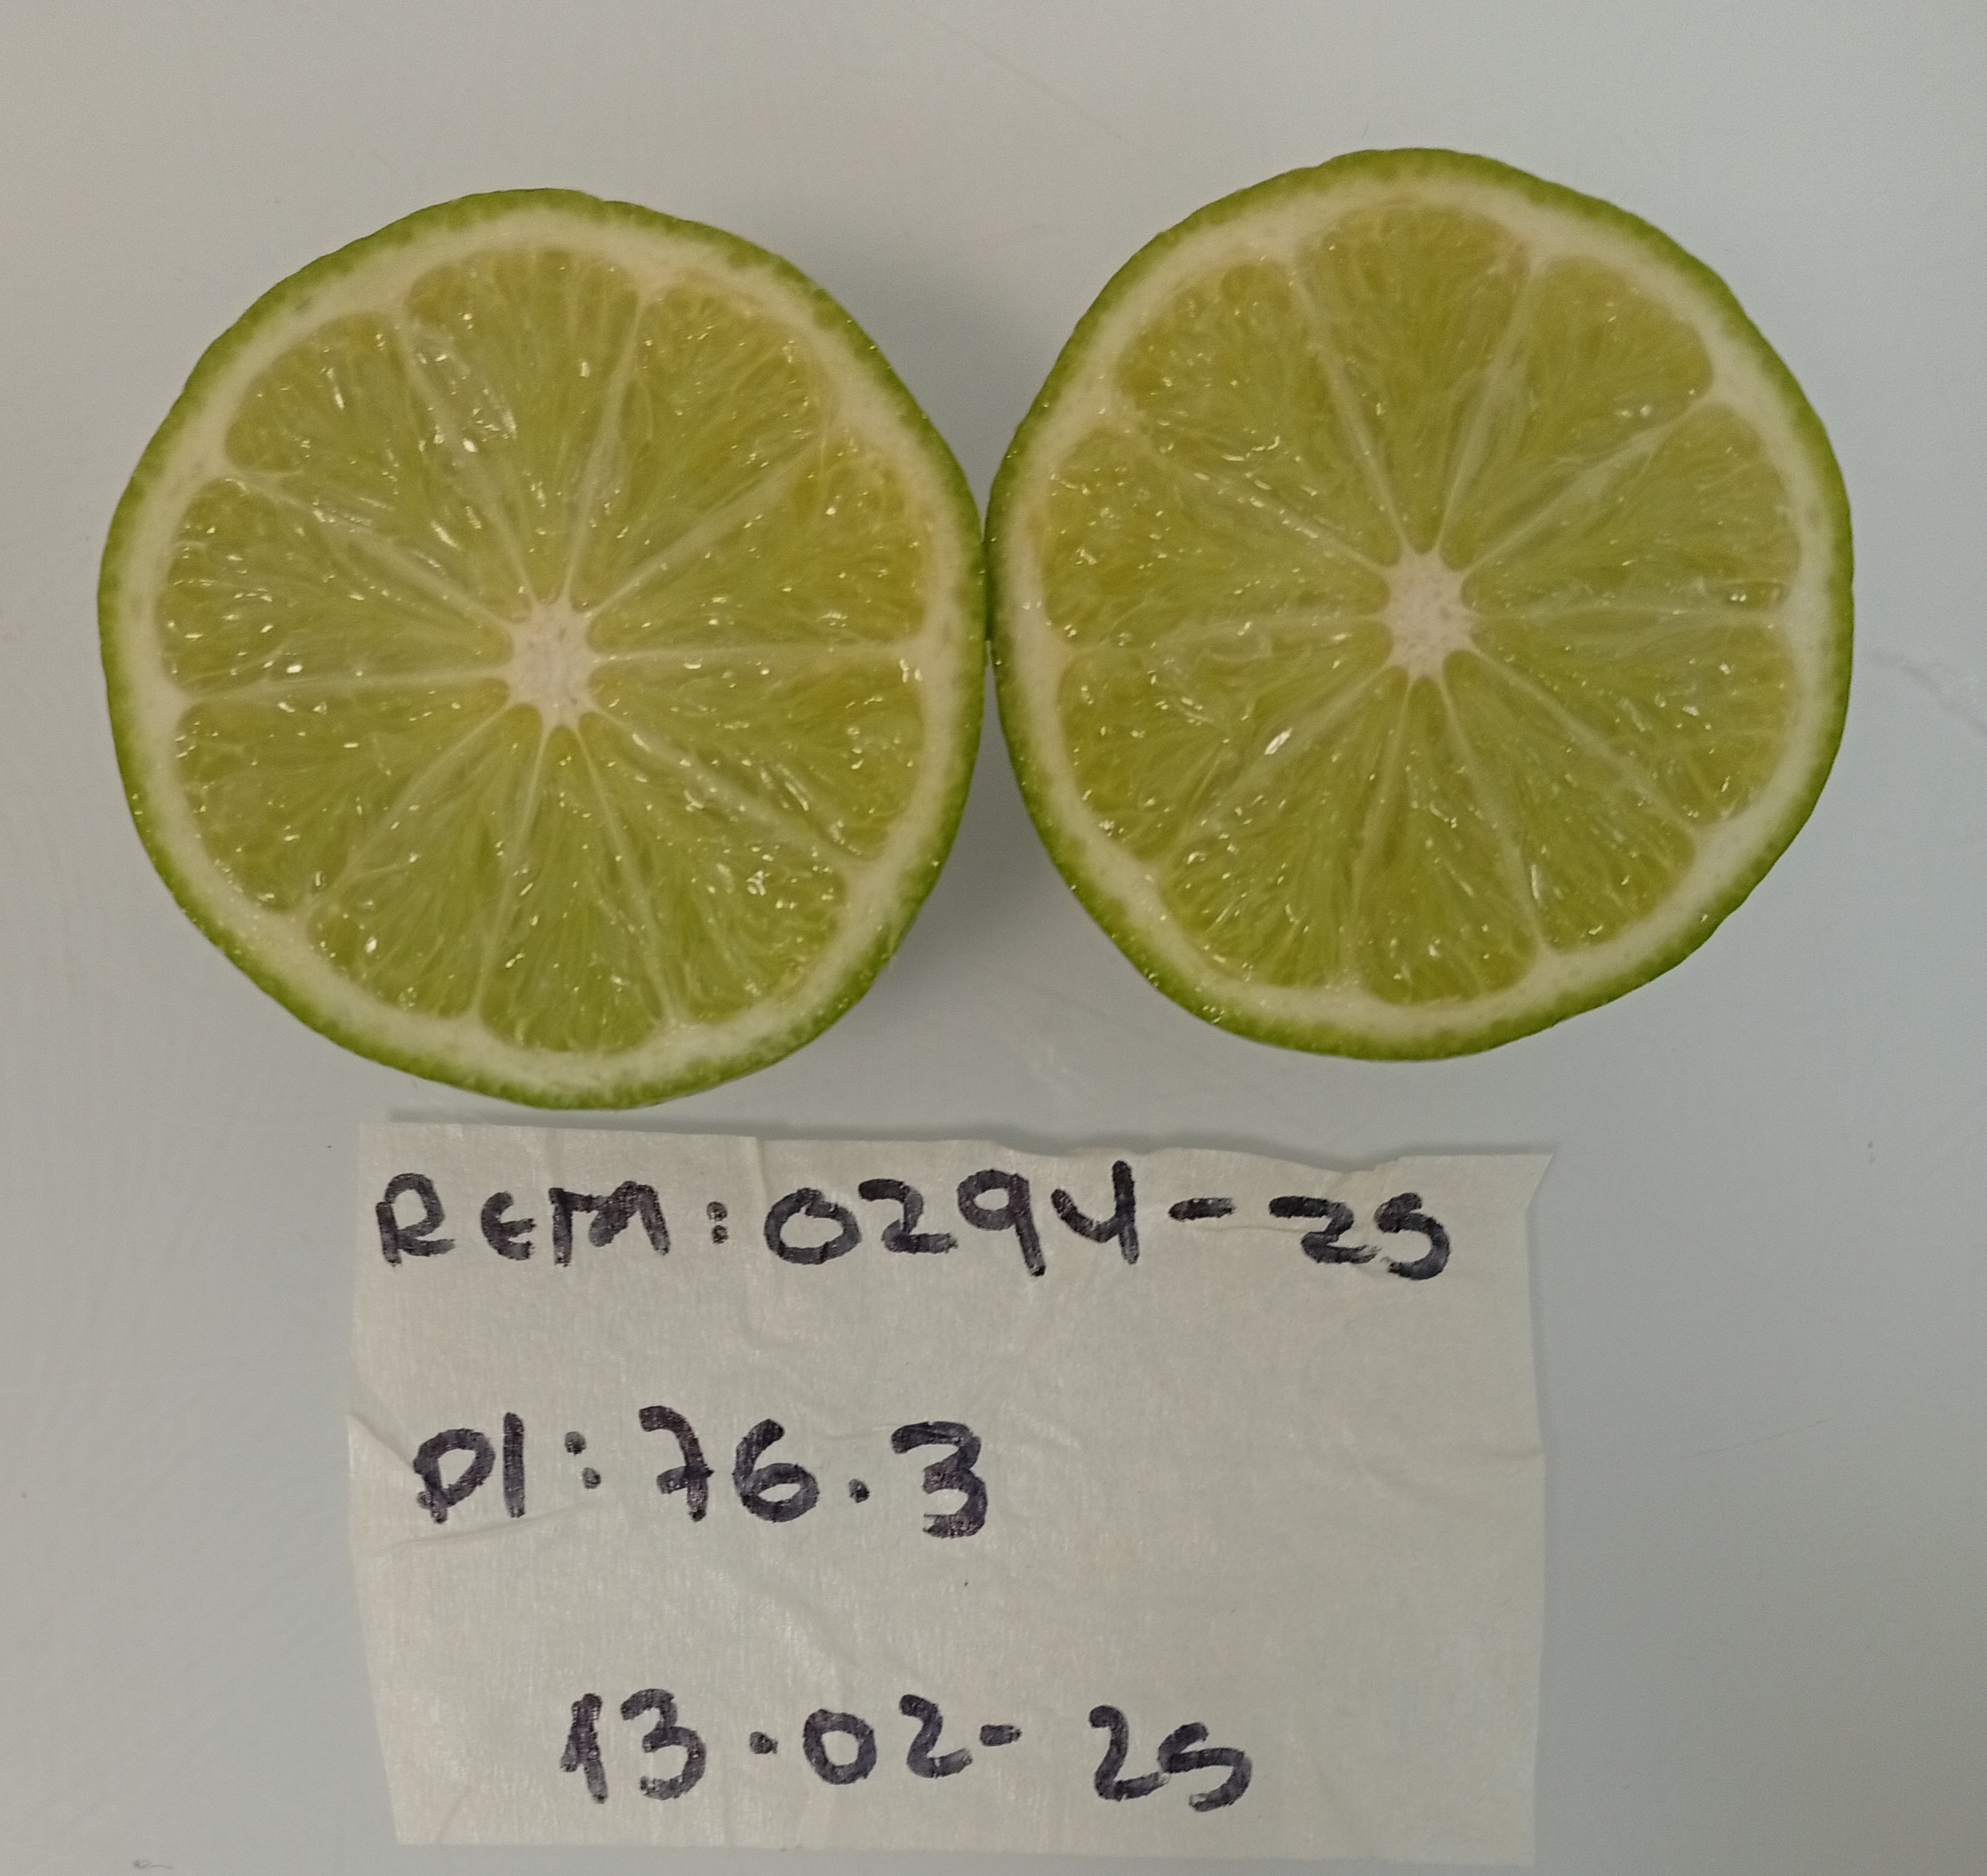 REM: 0294-25
DI: 76.3
13.02-25